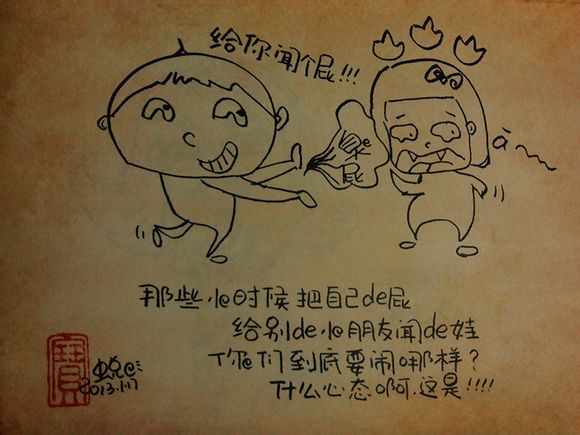 给你闻个屁!!!
屁
ā~
那些小时候把自己de屁
给别de小朋友闻de娃
你们到底要闹哪样?
什么心态啊,这是!!!!
2013.1.17